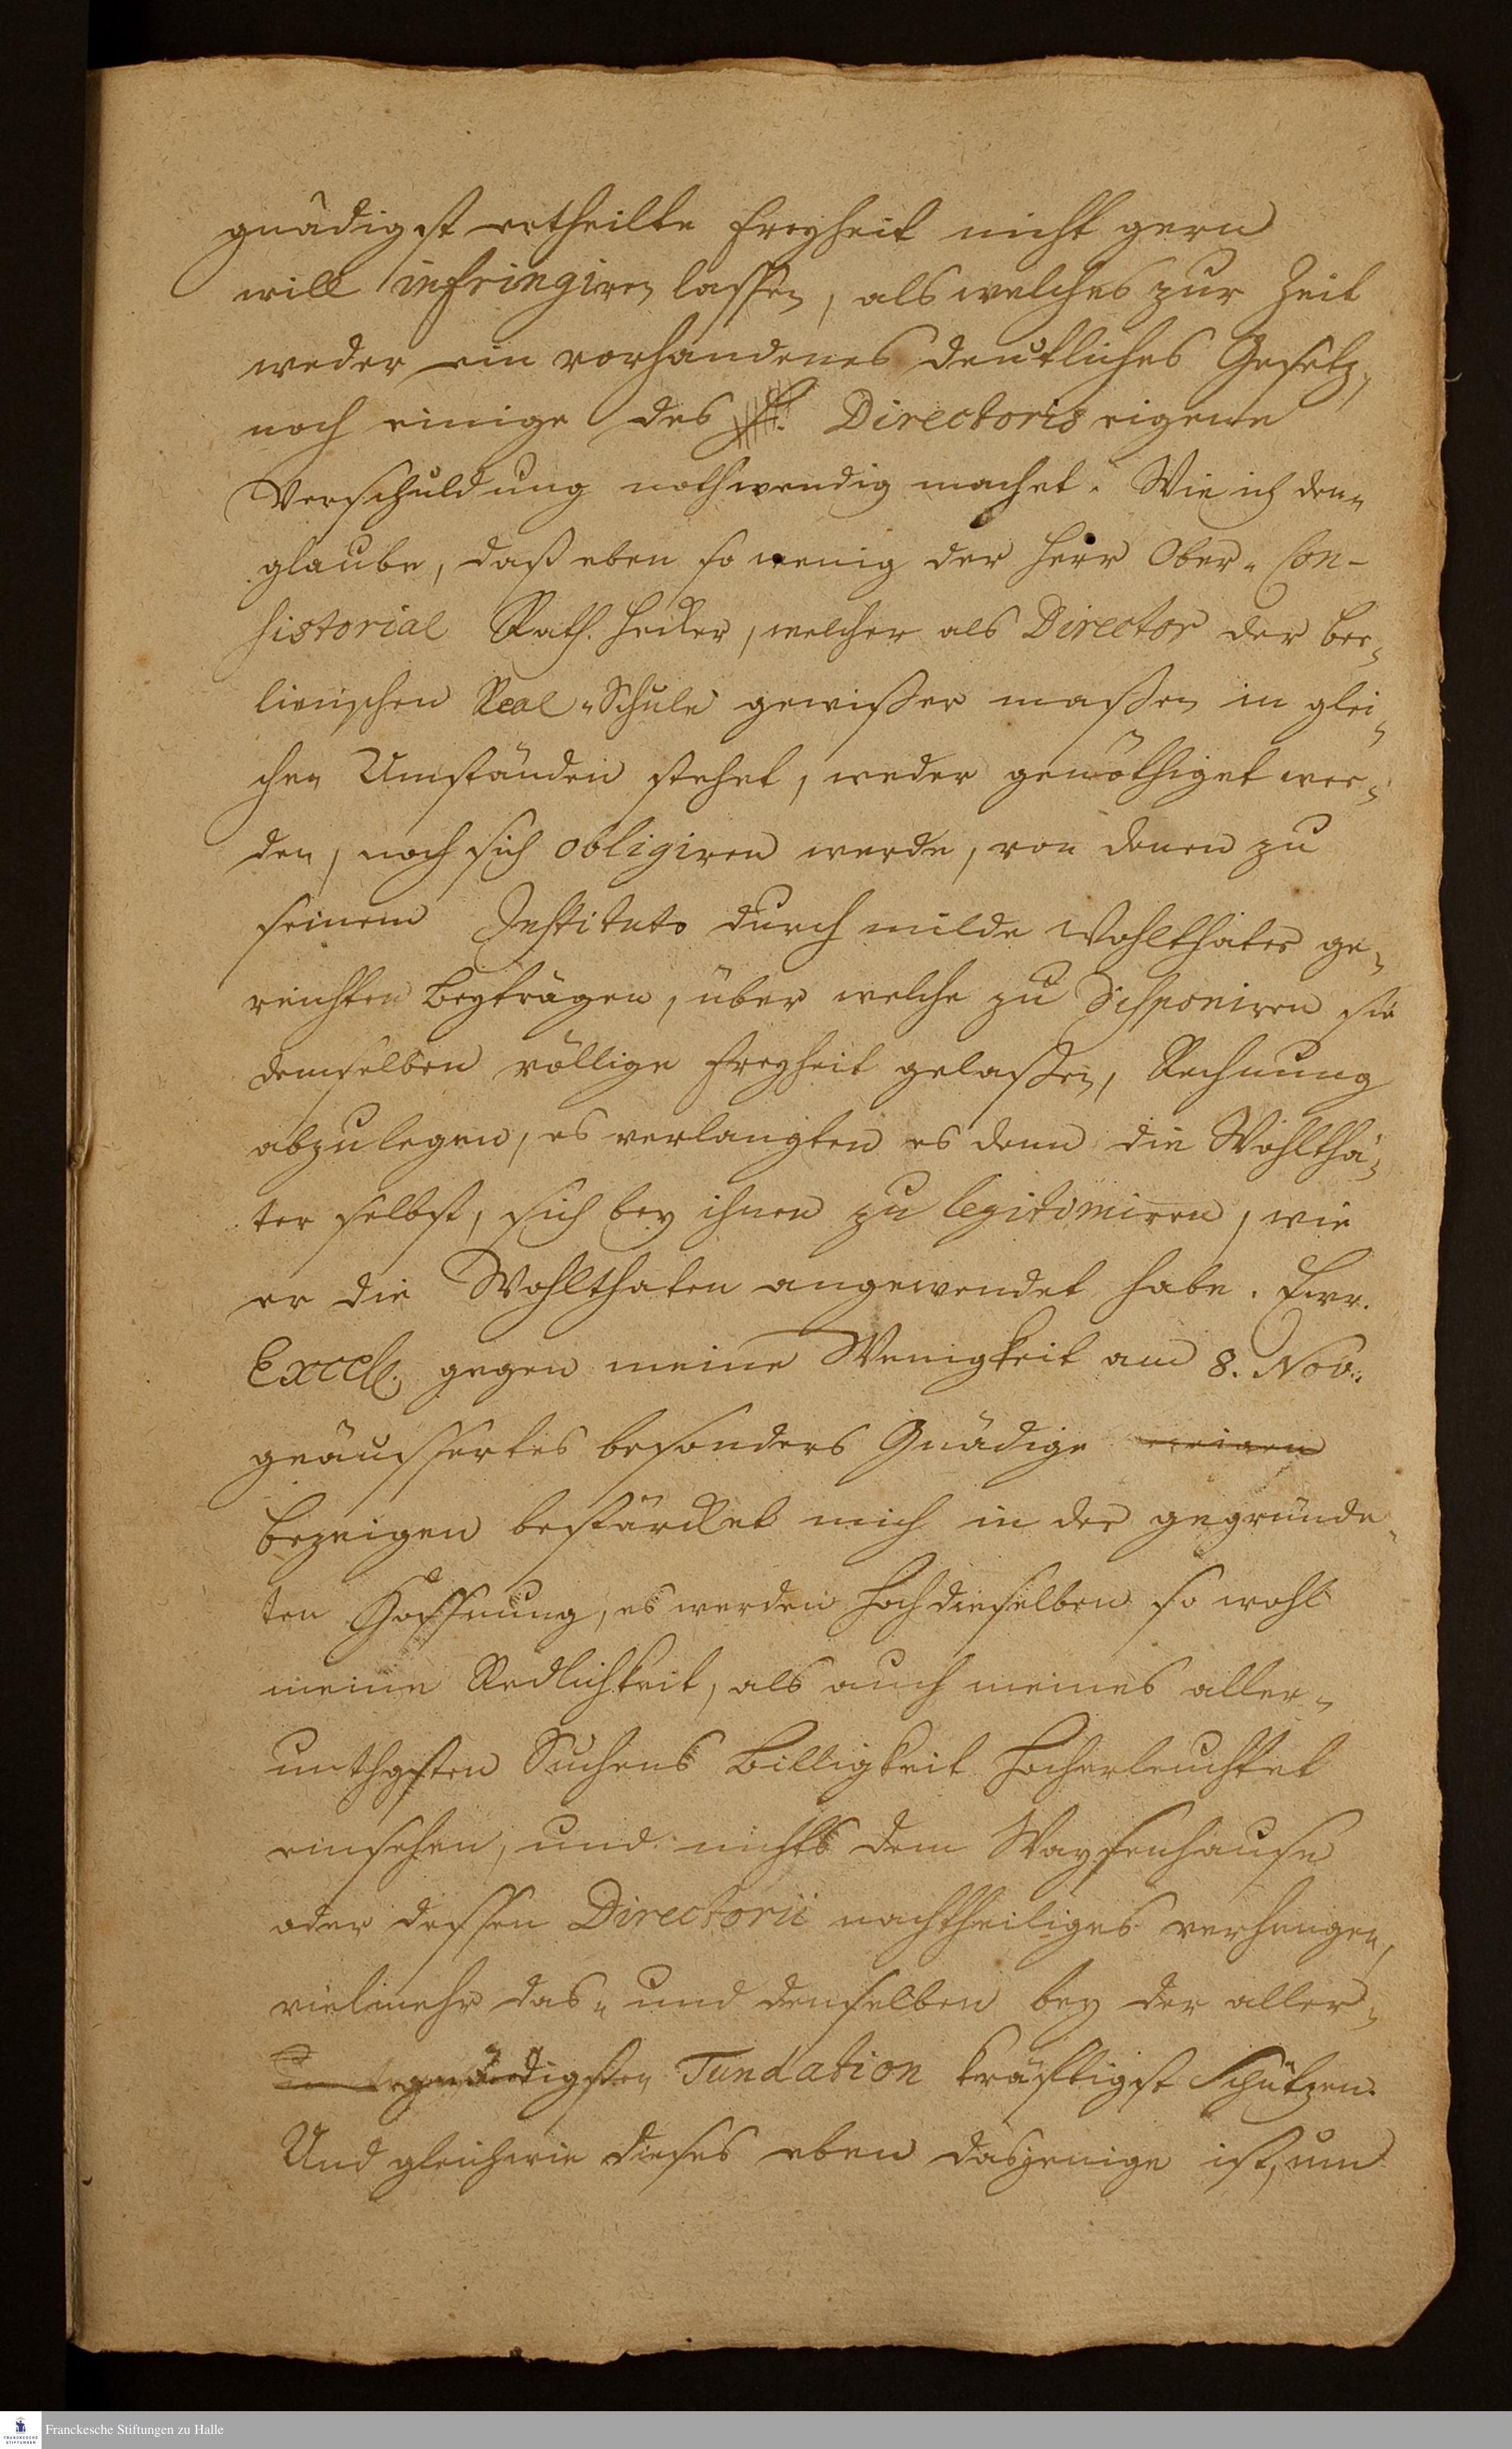 gnädigst ertheilte Freyheit nicht gern
will infringiren lassen, als welches zur Zeit
weder ein vorhandenes deutliches Gesetz,
noch einige des H. Directoris eigene
Verschuldung nothwendig machet. Wie ich denn
glaube, daß eben so wenig der Herr Ober-Con-
sistorial Rath. Hecker, welcher als Director der Ber-
linischen Real-Schule gewißer maßen in glei-
chen Umständen stehet, weder genöthiget wer-
den, noch sich obligiren werde, von denen zu
seinem Instituto durch milde Wohlthäter ge-
reichten Beyträgen, über welche zu disponiren sie
demselben völlige Freyheit gelaßen, Rechnung
abzulegen, es verlangten es denn die Wohlthä-
ter selbst, sich bey ihnen zu legitimiren, wie
er die Wohlthaten angewendet habe. Ewr.
Excell. gegen meine Wenigkeit am 8. Nov.
geäussertes besonders Gnädige
bezeigen bestärcket mich in der gegründe-
ten Hoffnung, es werden Hochdieselben so wohl
meine Redlichkeit, als auch meines aller-
unthgsten Suchens Billigkeit hocherleuchtet
einsehen, und nichts dem Waysenhause
oder dessen Directorii nachtheiliges verhengen,
vielmehr das- und denselben bey der aller-
gnädigsten Fundation kräftigst schützen.
Und gleichwie dieses eben dasjenige ist, um
Franckesche Stiftungen zu Halle